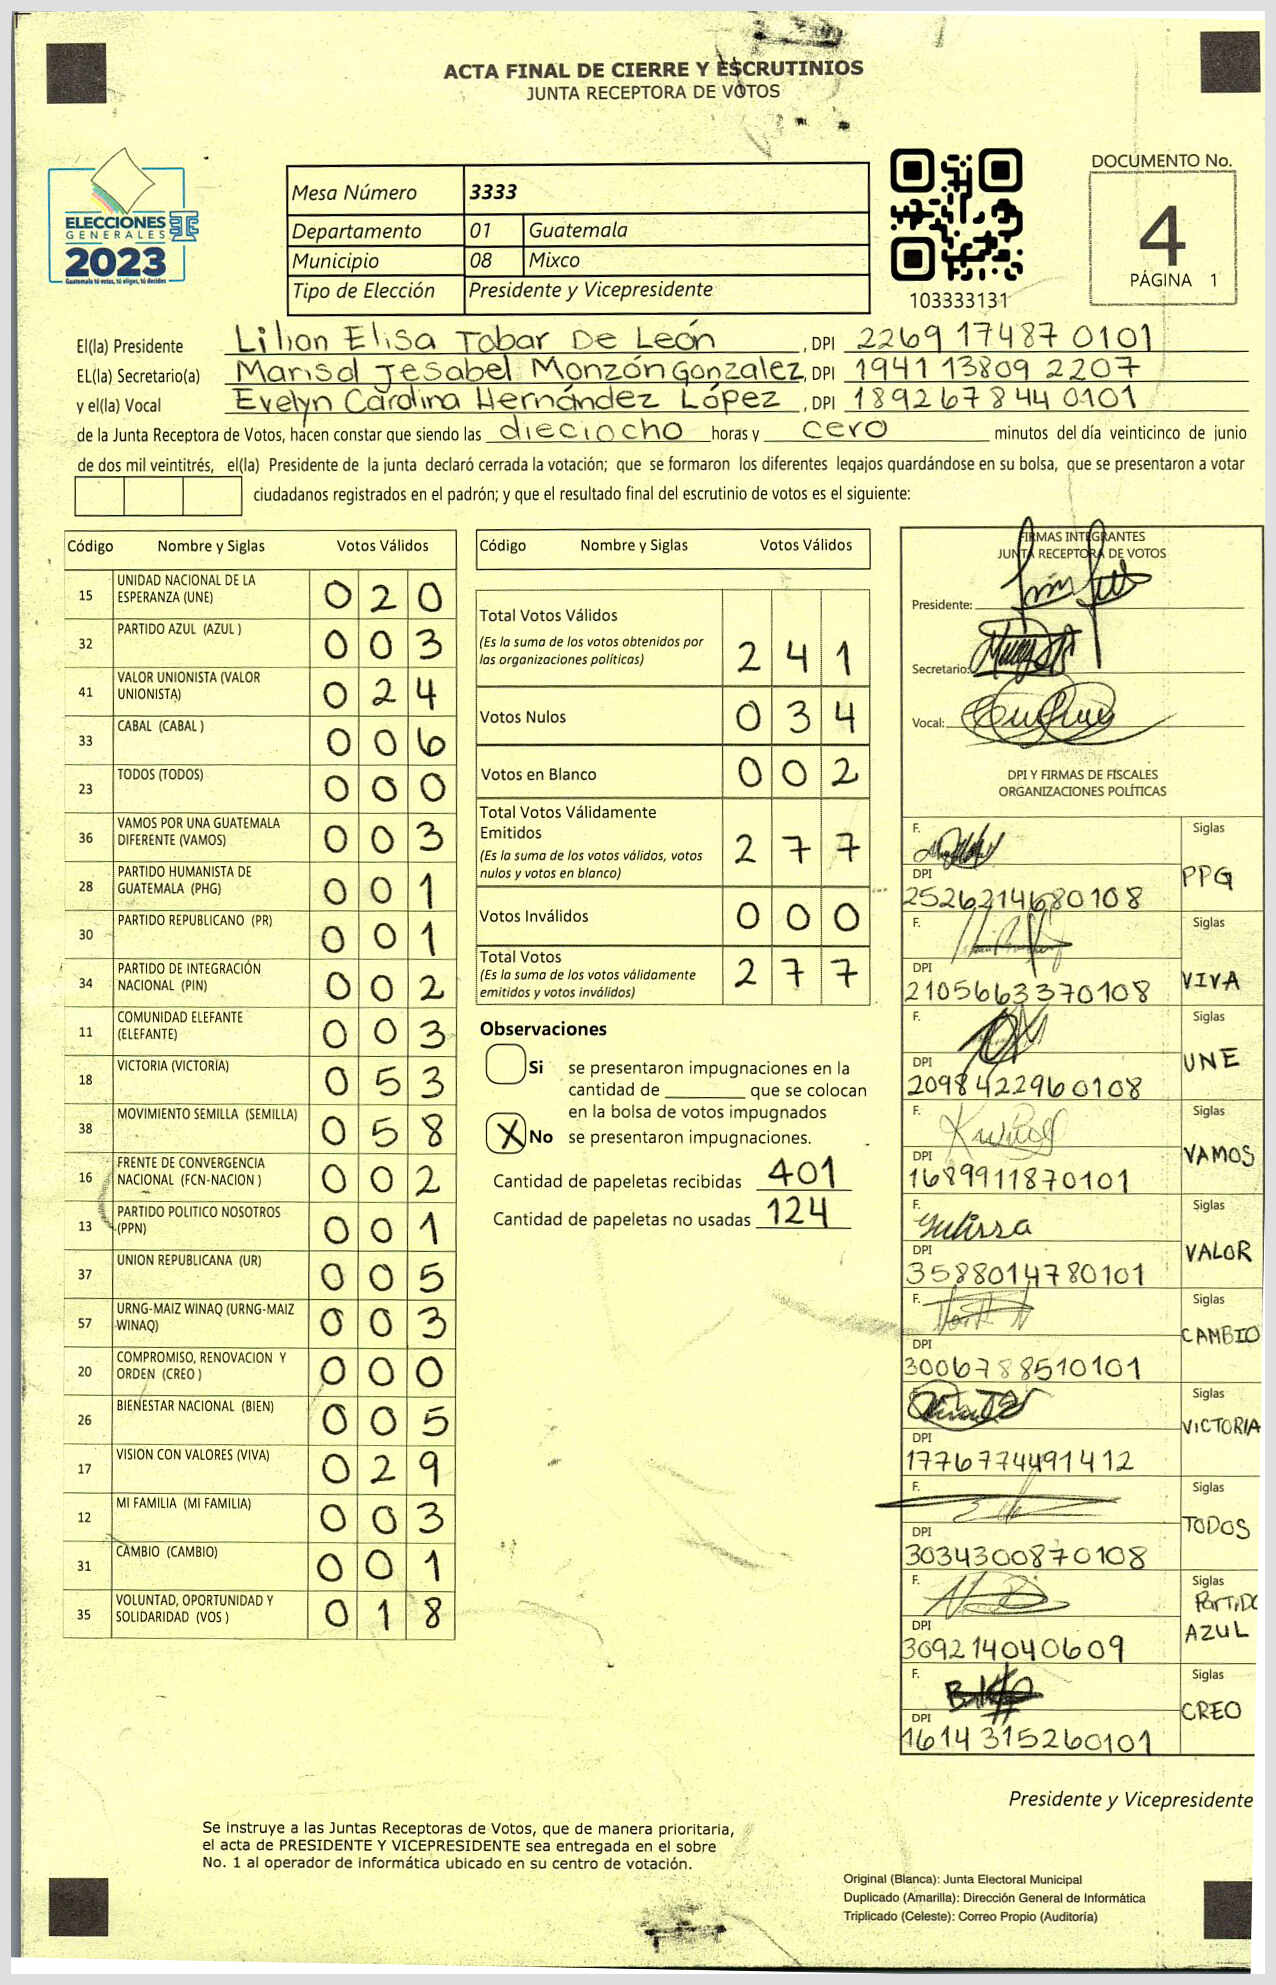 ACTA FINAL DE CIERRE Y ESCRUTINIOS
JUNTA RECEPTORA DE VOTOS
ELECCIONES
GENERALES
2023
Guatemala tú votas, tú eliges, tú decides
Mesa Número 3333
Departamento 01 Guatemala
Municipio 08 Mixco
Tipo de Elección Presidente y Vicepresidente
103333131
DOCUMENTO No.
4
PÁGINA 1
El(la) Presidente Lilian Elisa Tobar De León, DPI 2269 17487 0101
EL(la) Secretario(a) Marisol Jesabel Monzón Gonzalez, DPI 1941 13809 2207
y el(la) Vocal Evelyn Carolina Hernández López, DPI 1892678440101
de la Junta Receptora de Votos, hacen constar que siendo las dieciocho horas y cero minutos del día veinticinco de junio
de dos mil veintitrés, el(la) Presidente de la junta declaró cerrada la votación; que se formaron los diferentes legajos guardándose en su bolsa, que se presentaron a votar
ciudadanos registrados en el padrón; y que el resultado final del escrutinio de votos es el siguiente:
Código Nombre y Siglas Votos Válidos
15 UNIDAD NACIONAL DE LA ESPERANZA (UNE) 0 2 0
32 PARTIDO AZUL (AZUL ) 0 0 3
41 VALOR UNIONISTA (VALOR UNIONISTA) 0 2 4
33 CABAL (CABAL ) 0 0 6
23 TODOS (TODOS) 0 0 0
36 VAMOS POR UNA GUATEMALA DIFERENTE (VAMOS) 0 0 3
28 PARTIDO HUMANISTA DE GUATEMALA (PHG) 0 0 1
30 PARTIDO REPUBLICANO (PR) 0 0 1
34 PARTIDO DE INTEGRACIÓN NACIONAL (PIN) 0 0 2
11 COMUNIDAD ELEFANTE (ELEFANTE) 0 0 3
18 VICTORIA (VICTORIA) 0 5 3
38 MOVIMIENTO SEMILLA (SEMILLA) 0 5 8
16 FRENTE DE CONVERGENCIA NACIONAL (FCN-NACION ) 0 0 2
13 PARTIDO POLITICO NOSOTROS (PPN) 0 0 1
37 UNION REPUBLICANA (UR) 0 0 5
57 URNG-MAIZ WINAQ (URNG-MAIZ WINAQ) 0 0 3
20 COMPROMISO, RENOVACION Y ORDEN (CREO ) 0 0 0
26 BIENESTAR NACIONAL (BIEN) 0 0 5
17 VISION CON VALORES (VIVA) 0 2 9
12 MI FAMILIA (MI FAMILIA) 0 0 3
31 CAMBIO (CAMBIO) 0 0 1
35 VOLUNTAD, OPORTUNIDAD Y SOLIDARIDAD (VOS ) 0 1 8
Código Nombre y Siglas Votos Válidos
Total Votos Válidos
(Es la suma de los votos obtenidos por
las organizaciones políticas) 2 4 1
Votos Nulos 0 3 4
Votos en Blanco 0 0 2
Total Votos Válidamente
Emitidos
(Es la suma de los votos válidos, votos
nulos y votos en blanco) 2 7 7
Votos Inválidos 0 0 0
Total Votos
(Es la suma de los votos válidamente
emitidos y votos inválidos) 2 7 7
Observaciones
Si se presentaron impugnaciones en la
cantidad de ________ que se colocan
en la bolsa de votos impugnados
X No se presentaron impugnaciones.
Cantidad de papeletas recibidas 401
Cantidad de papeletas no usadas 124
FIRMAS INTEGRANTES
JUNTA RECEPTORA DE VOTOS
Presidente:
Secretario:
Vocal:
DPI Y FIRMAS DE FISCALES
ORGANIZACIONES POLÍTICAS
F. Siglas
DPI PPG
2526214680108
F. Siglas
DPI VIVA
2105663370108
F. Siglas
DPI UNE
2098422960108
F. Siglas
DPI VAMOS
1689911870101
F. Yulissa Siglas
DPI VALOR
3588014780101
F. Siglas
DPI CAMBIO
3006788510101
F. Siglas
DPI VICTORIA
1776774491412
F. Siglas
DPI TODOS
3034300870108
F. Siglas
PARTIDO
DPI AZUL
309214040609
F. Siglas
DPI CREO
1614315260101
Presidente y Vicepresidente
Se instruye a las Juntas Receptoras de Votos, que de manera prioritaria,
el acta de PRESIDENTE Y VICEPRESIDENTE sea entregada en el sobre
No. 1 al operador de informática ubicado en su centro de votación.
Original (Blanca): Junta Electoral Municipal
Duplicado (Amarilla): Dirección General de Informática
Triplicado (Celeste): Correo Propio (Auditoría)